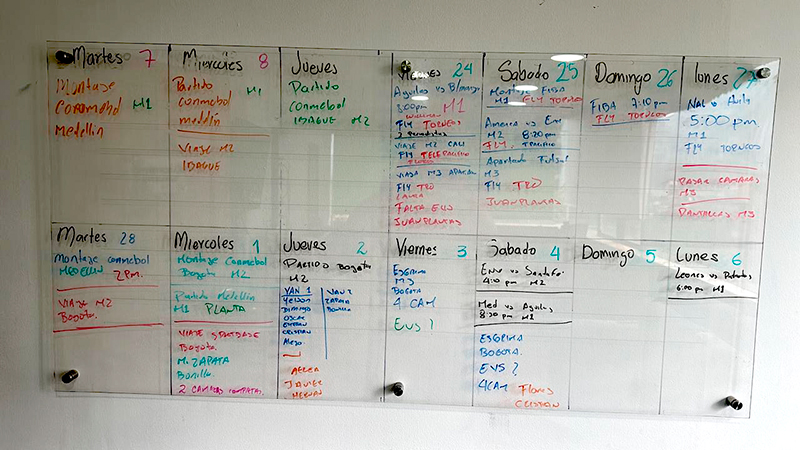 Martes 7
Montaje
Conmebol M1
Medellin
Miercoles 8
Partido M1
conmebol
medellin
VIAJE M2
IBAGUE
Jueves
Partido
Conmebol
IBAGUE M2
Viernes 24
Aguilas vs
8:00pm M1
FLY TORNEOS
VIAJE M2 CALI
FLY TELEPACIFICO
VIAJE M3
FLY TRO
FALTA EVS
JUANPLANTAS
Sabado 25
Montaje FIBA
M1 FLY TORNEO
America vs.
M2 8:20pm
FLY. TPACIFICO
Apartado Futsal
M3
FLY TRO
JUANPLANTAS
Domingo 26
FIBA 7:10pm
FLY TORNEOS
lunes 27
5:00pm
M1
FLY TORNEOS
PASAR CAMARAS
M3
PANTALLAS M3
Martes 28
Montaje conmebol
MEDELLIN 2PM.
VIAJE M2
Bogota.
Miercoles 1
Montaje Conmebol
Bogota M2
Partido Medellin
M1 PLANTA
VIAJE
Bogota.
M. ZAPATA
Bonilla
2
Jueves 2
PARTIDO Bogota
M2
VAN 1
VAN 2
Yeison
ZAPATA
Domingo
Bonilla
OSCAR
CRISTIAN
JAVIER
Viernes 3
ESGRIMA
M3
BOGOTA
4 CAM
EVS ?
Sabado 4
Env vs SantaFe.
4:10 pm M2
Med vs Aguilas
8:30 pm M1
ESGRIMA
BOGOTA.
EVS ?
4CAM Flores
CRISTIAN
Domingo 5
Lunes 6
Leones vs
6:00 pm M1